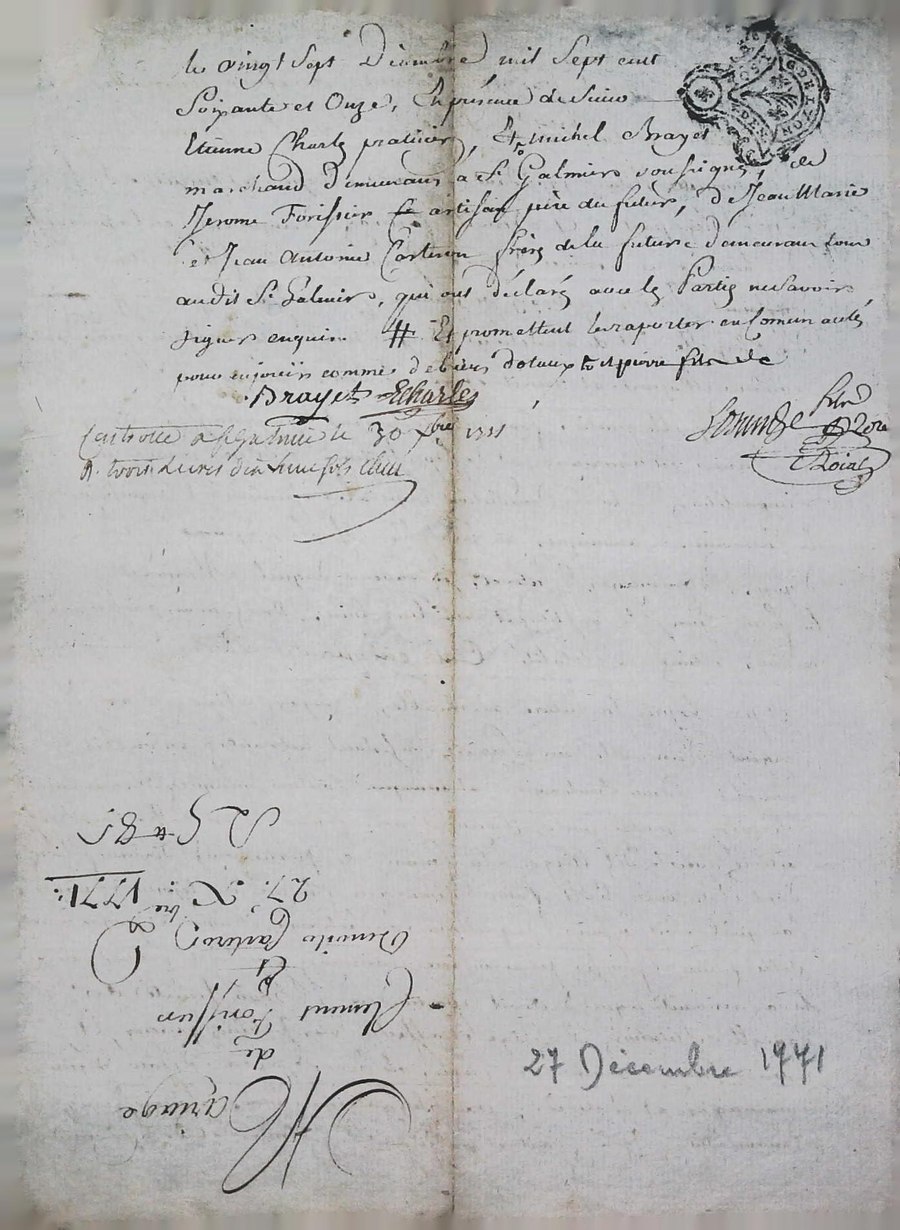 le vingt Sept Decembre mil Sept cent
Soixante et Onze, En présence de Sieur
Etienne Charles praticien, Et michel Brayet
marchand Demeurans a St. Galmier soussignés, de
Jerome Forissier artisan père du futur, de Jean Marie
et Jean Antoine Carteron frères de la future demeurans tous
audit St. Galmier, qui ont déclaré avec les Parties ne savoir
signer enquis. # Et promettent les raporter en Comunauté,
pour en jouir comme de biens dotaux
Brayet ECharles
Controllé a St Galmier le 30 Xbre 1771
R trois Livres dix huit sols
Mariage
de
Clement Forissier
Et
Benoite Carteron
27e Xbre 1771.
27 Décembre 1771